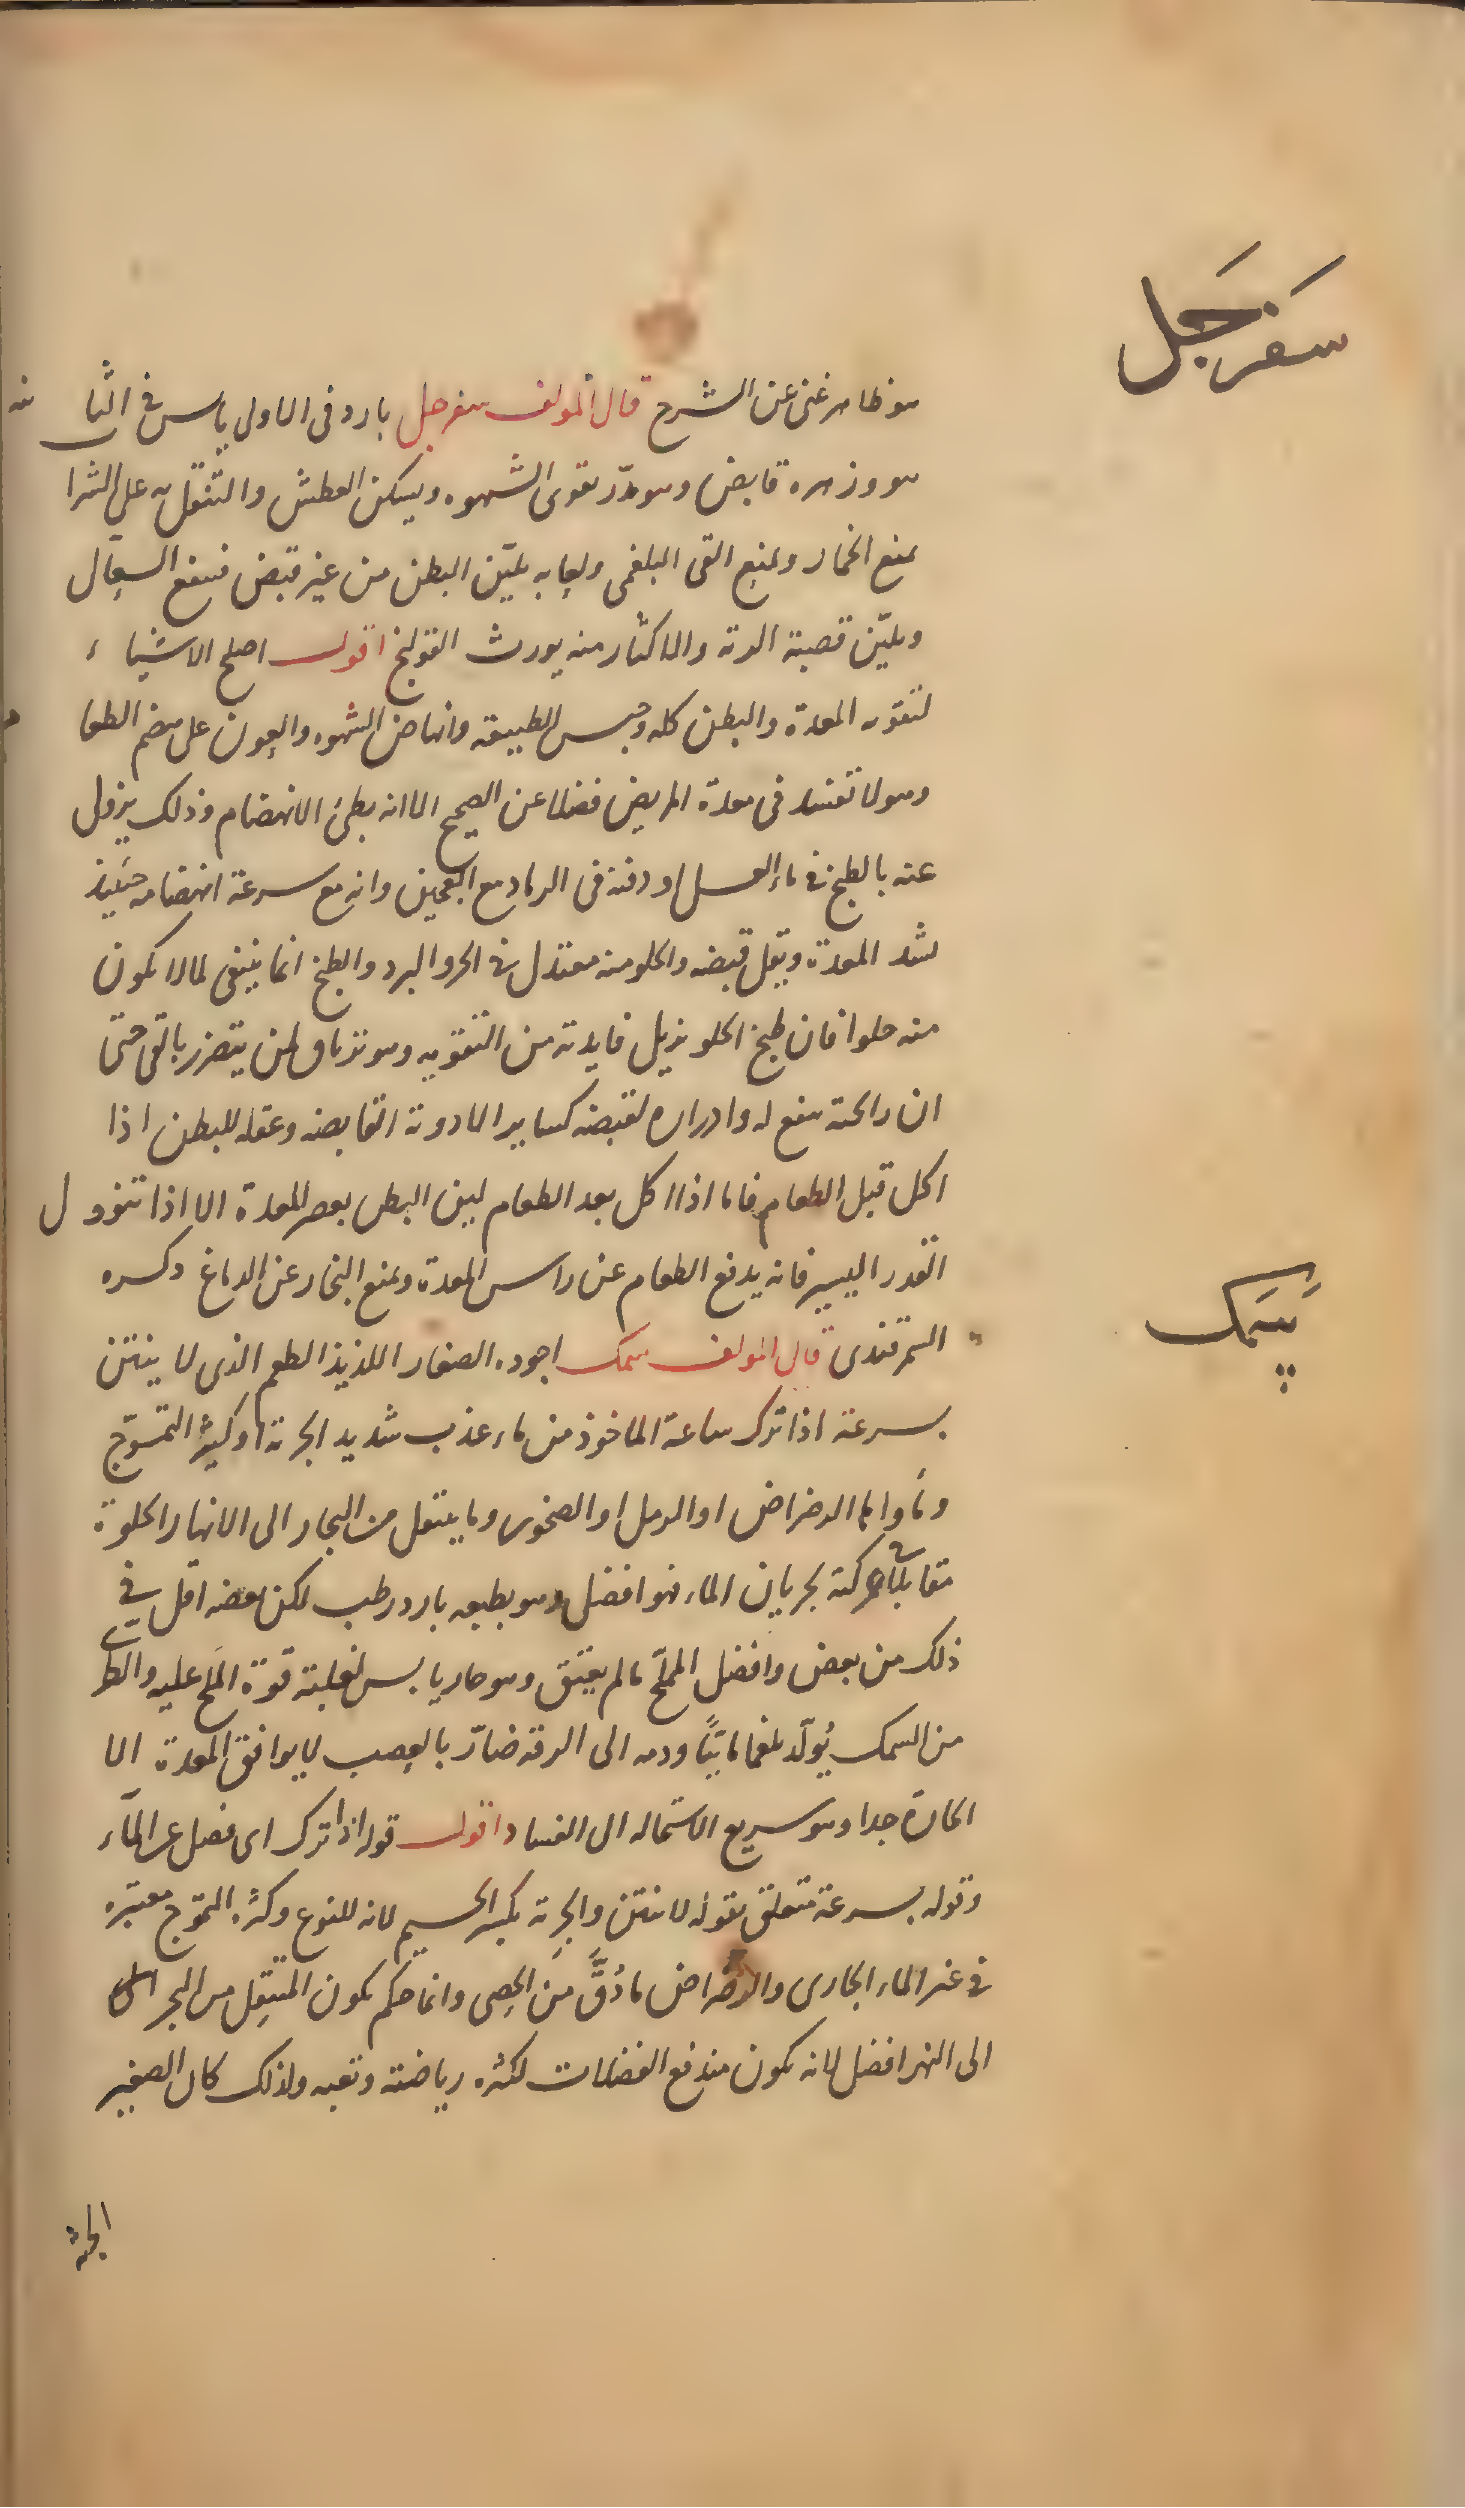 سَفَرجَل
هو ظاهر غنى عن الشرح قال المولف سفرجل بارد فى الاولى يابس فى الثانيه
هو وزهره قابض وهو مدرّ يقوى الشهوه ويسكن العطش والتنقل به على الشرا
يمنع الخمار ويمنع القى البلغمى ولعابه يليّن البطن من غير قبض فينفع السعال
ويليّن قصبة الرئة والاكثار منه يورث القولنج اقول اصلح الاشياء
لتقويه المعدة والبطن كله وحبس الطبيعة وانهاض الشهوه والعون على هضم الطعا
وهو لا تفسد فى معدة المريض فضلا عن الصحيح الا انه بطئ الانهضام وذلك يزول
عنه بالطبخ فى ماء العسل او دفنه فى الرماد مع العجين وانه مع سرعة انهضامه حينيذ
يشد المعدة ويقل قبضه والحلو منه معتدل فى الحر والبرد والطبخ انما ينبغى لما لا يكون
منه حلوا فان طبخ الحلو يزيل فايدته من التقويه وهو ترياق لمن يتضرر بالقى حتى
ان رائحته ينفع له وادراره لقبضه كساير الادوية القابضه وعقله للبطن اذا
اكل قبل الطعام فاما اذا اكل بعد الطعام ليّن البطن بعصر المعدة الا اذا تنوول
القدر اليسير فانه يدفع الطعام عن راس المعدة ويمنع البخار عن الدماغ ذكره
السمرقندى قال المولف سمك اجوده الصغار اللذيذ الطعم الذى لا ينتن
سَمَك
بسرعة اذا ترك ساعة الماخوذ من ماء عذب شديد الجرية او كثير التموّج
وماواها الرضراض او الرمل او الصخور وما ينتقل من البحار الى الانهار الحلوة
مقابلا فى حركته لجريان الماء فهو افضل وهو بطبعه بارد رطب لكن بعضه اقل فى
ذلك من بعض وافضل المملّح ما لم يعتق وهو حار يابس لغلبة قوة الملح عليه والطرى
من السمك يُولّد بلغما مائيًا ودمه الى الرقة ضارّ بالعصب لا يوافق المعدة الا
الحارة جدا وهو سريع الاستحاله الى الفساد اقول قوله اذا ترك اى فصل عن المآء
وقوله بسرعة متعلق بقوله لا ينتن والجِرية بكسر الجيم لانه للنوع وكثرة التموّج معتبره
فى غير الماء الجارى والرضراض ما دُقَّ مِن الحصى وانما حكم بكون المنتقِل من البحر
الى النهر افضل لانه يكون مندفع الفضلات لكثره رياضته وتعبه ولذلك كان الصغير